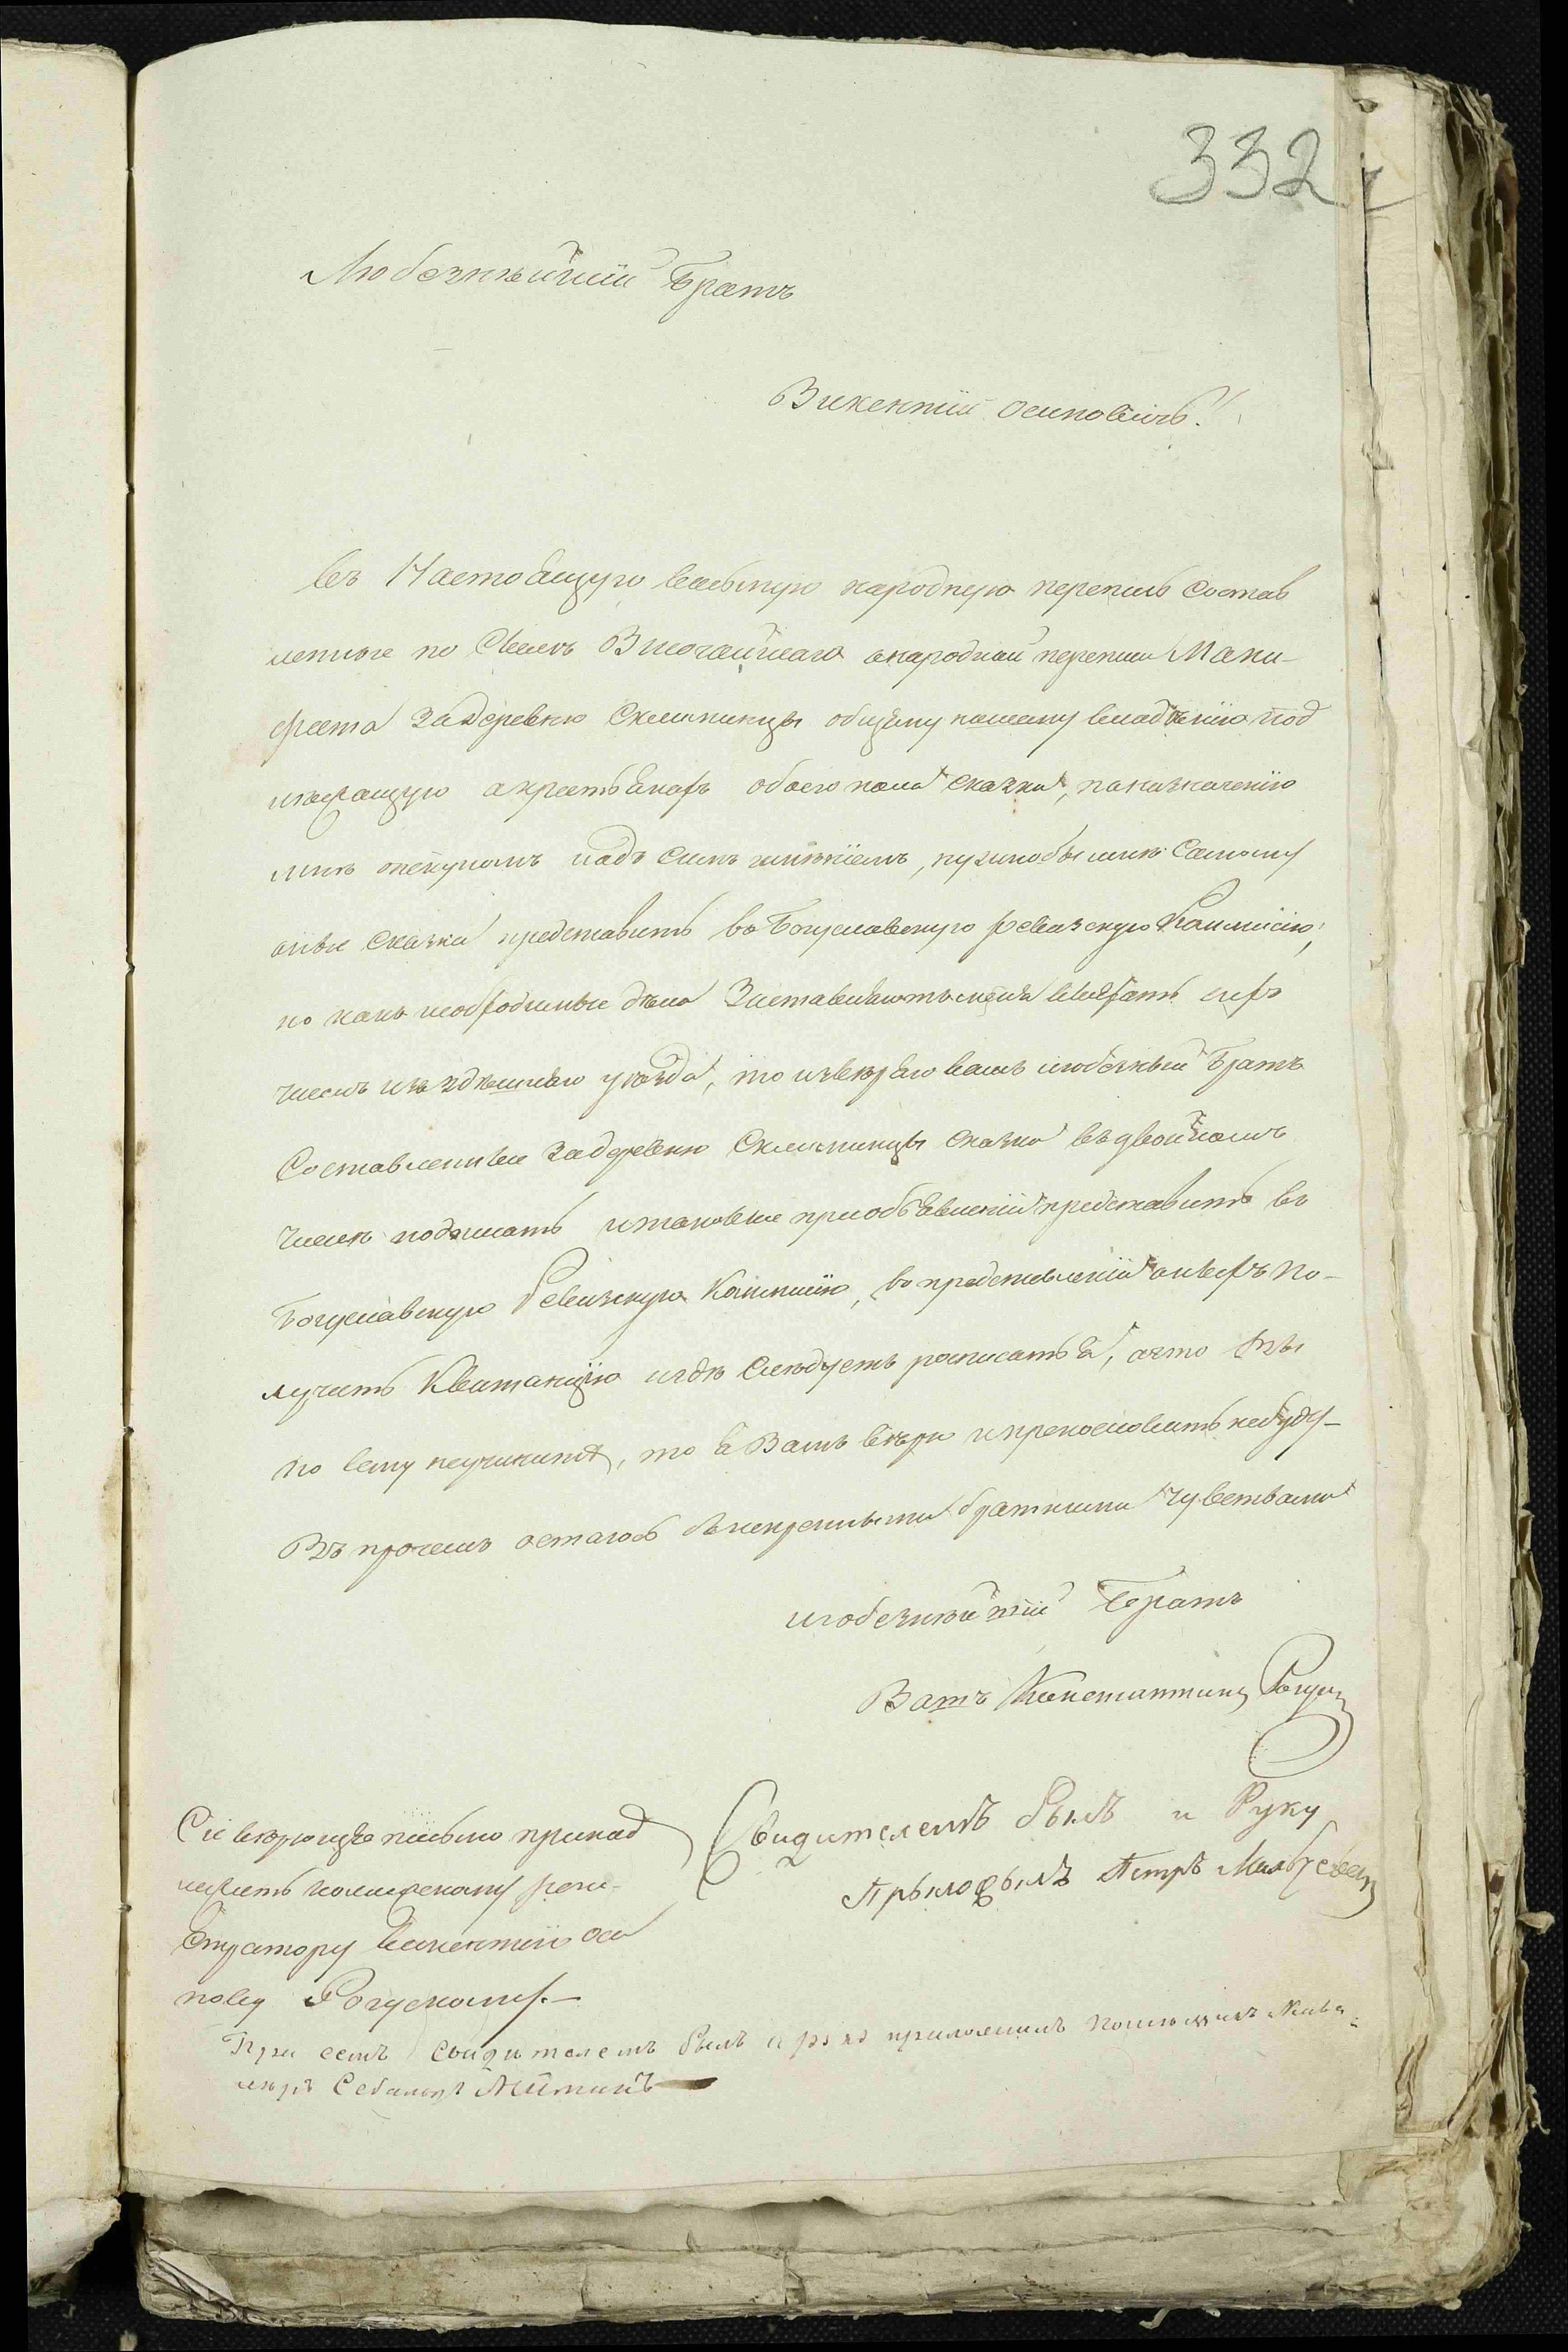 332
Любезнѣйшій Братъ
Викентій Осиповичъ!
въ Настоящую всеобщую народную перепись состав
ленные по силѣ Височайшаго о народной переписи Мани-
феста за деревню Склиминцы общему нашему владѣнію под
лежащую о крестьянахъ обоего пола сказки, по назначенію
мнѣ опекуномъ надъ симъ имѣніемъ, нужно бы мнѣ самому
оныя сказки представить въ Богуславскую ревизскую Коммисію;
но какъ необходимые дѣла заставляютъ меня выѣхать сихъ
числъ изъ здѣшняго уѣзда, то и ввѣряю вамъ любезный Братъ
составленные за деревню Склиминцы сказки въ двойномъ
числѣ подписать и таковые при объявленіи представить въ
Богуславскую Ревизскую Коммисію, въ представленіи оныхъ по-
лучить Квитанцію и гдѣ слѣдуетъ росписатья, а что Вы
по сему неучините, то я Вамъ вѣрю и прекословить небуду
Въ прочемъ остаюсь съ искренными братними чувствами
любезнѣйшій Братъ
Вашъ Константинъ
Свидителемъ былъ и Руку
Прыложылъ Петръ
Сіе вѣрющее письмо принад
лежитъ колежскому реги-
стратору Викентію Оси
пову Рогускому.
При семъ свидителемъ былъ и руку приложилъ